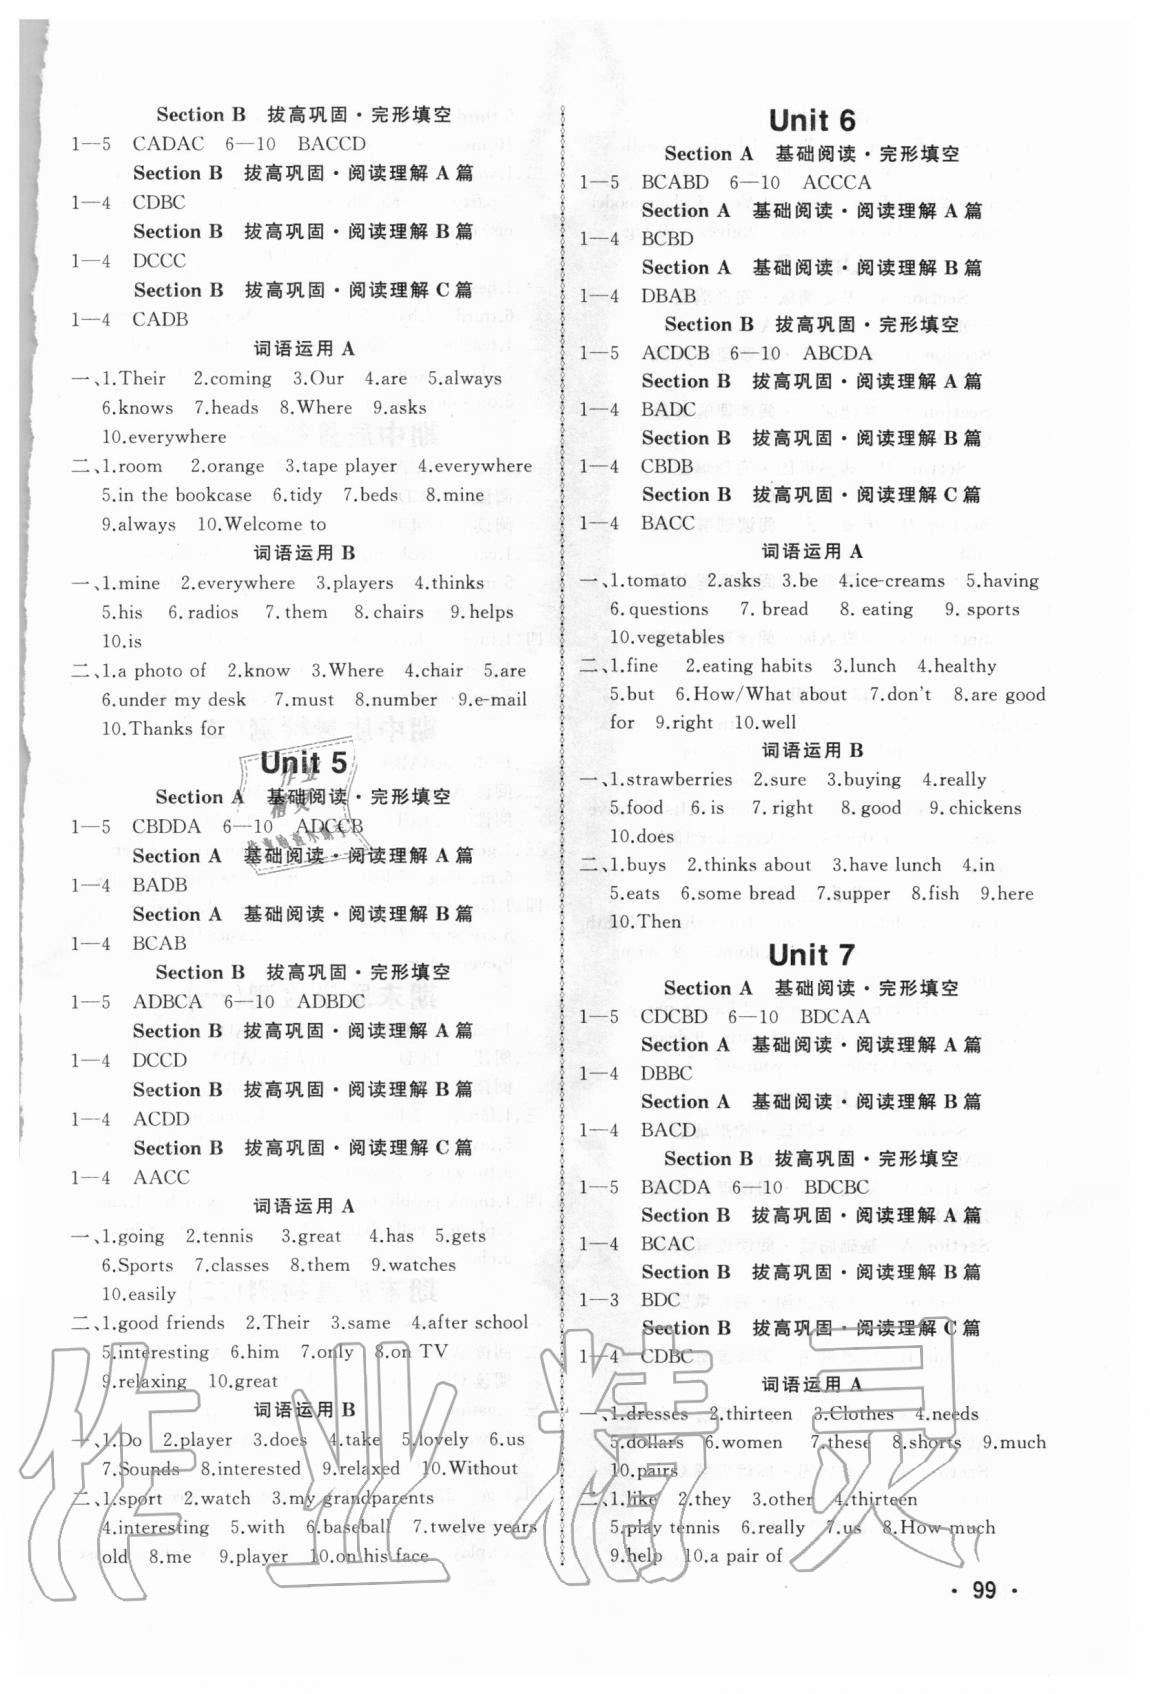 Section B 拔高巩固·完形填空
1—5 CADAC 6—10 BACCD
Section B 拔高巩固·阅读理解 A 篇
1—4 CDBC
Section B 拔高巩固·阅读理解 B 篇
1—4 DCCC
Section B 拔高巩固·阅读理解 C 篇
1—4 CADB
词语运用 A
一、1.Their 2.coming 3.Our 4.are 5.always
6.knows 7.heads 8.Where 9.asks
10.everywhere
二、1.room 2.orange 3.tape player 4.everywhere
5.in the bookcase 6.tidy 7.beds 8.mine
9.always 10.Welcome to
词语运用 B
一、1.mine 2.everywhere 3.players 4.thinks
5.his 6.radios 7.them 8.chairs 9.helps
10.is
二、1.a photo of 2.know 3.Where 4.chair 5.are
6.under my desk 7.must 8.number 9.e-mail
10.Thanks for
Unit 5
Section A 基础阅读·完形填空
1—5 CBDDA 6—10 ADCCB
Section A 基础阅读·阅读理解 A 篇
1—4 BADB
Section A 基础阅读·阅读理解 B 篇
1—4 BCAB
Section B 拔高巩固·完形填空
1—5 ADBCA 6—10 ADBDC
Section B 拔高巩固·阅读理解 A 篇
1—4 DCCD
Section B 拔高巩固·阅读理解 B 篇
1—4 ACDD
Section B 拔高巩固·阅读理解 C 篇
1—4 AACC
词语运用 A
一、1.going 2.tennis 3.great 4.has 5.gets
6.Sports 7.classes 8.them 9.watches
10.easily
二、1.good friends 2.Their 3.same 4.after school
5.interesting 6.him 7.only 8.on TV
9.relaxing 10.great
词语运用 B
一、1.Do 2.player 3.does 4.take 5.lovely 6.us
7.Sounds 8.interested 9.relaxed 10.Without
二、1.sport 2.watch 3.my grandparents
4.interesting 5.with 6.baseball 7.twelve years
old 8.me 9.player 10.on his face
Unit 6
Section A 基础阅读·完形填空
1—5 BCABD 6—10 ACCCA
Section A 基础阅读·阅读理解 A 篇
1—4 BCBD
Section A 基础阅读·阅读理解 B 篇
1—4 DBAB
Section B 拔高巩固·完形填空
1—5 ACDCB 6—10 ABCDA
Section B 拔高巩固·阅读理解 A 篇
1—4 BADC
Section B 拔高巩固·阅读理解 B 篇
1—4 CBDB
Section B 拔高巩固·阅读理解 C 篇
1—4 BACC
词语运用 A
一、1.tomato 2.asks 3.be 4.ice-creams 5.having
6.questions 7.bread 8.eating 9.sports
10.vegetables
二、1.fine 2.eating habits 3.lunch 4.healthy
5.but 6.How/What about 7.don't 8.are good
for 9.right 10.well
词语运用 B
一、1.strawberries 2.sure 3.buying 4.really
5.food 6.is 7.right 8.good 9.chickens
10.does
二、1.buys 2.thinks about 3.have lunch 4.in
5.eats 6.some bread 7.supper 8.fish 9.here
10.Then
Unit 7
Section A 基础阅读·完形填空
1—5 CDCBD 6—10 BDCAA
Section A 基础阅读·阅读理解 A 篇
1—4 DBBC
Section A 基础阅读·阅读理解 B 篇
1—4 BACD
Section B 拔高巩固·完形填空
1—5 BACDA 6—10 BDCBC
Section B 拔高巩固·阅读理解 A 篇
1—4 BCAC
Section B 拔高巩固·阅读理解 B 篇
1—3 BDC
Section B 拔高巩固·阅读理解 C 篇
1—4 CDBC
词语运用 A
一、1.dresses 2.thirteen 3.Clothes 4.needs
5.dollars 6.women 7.these 8.shorts 9.much
10.pairs
二、1.like 2.they 3.other 4.thirteen
5.play tennis 6.really 7.us 8.How much
9.help 10.a pair of
· 99 ·
作业精灵